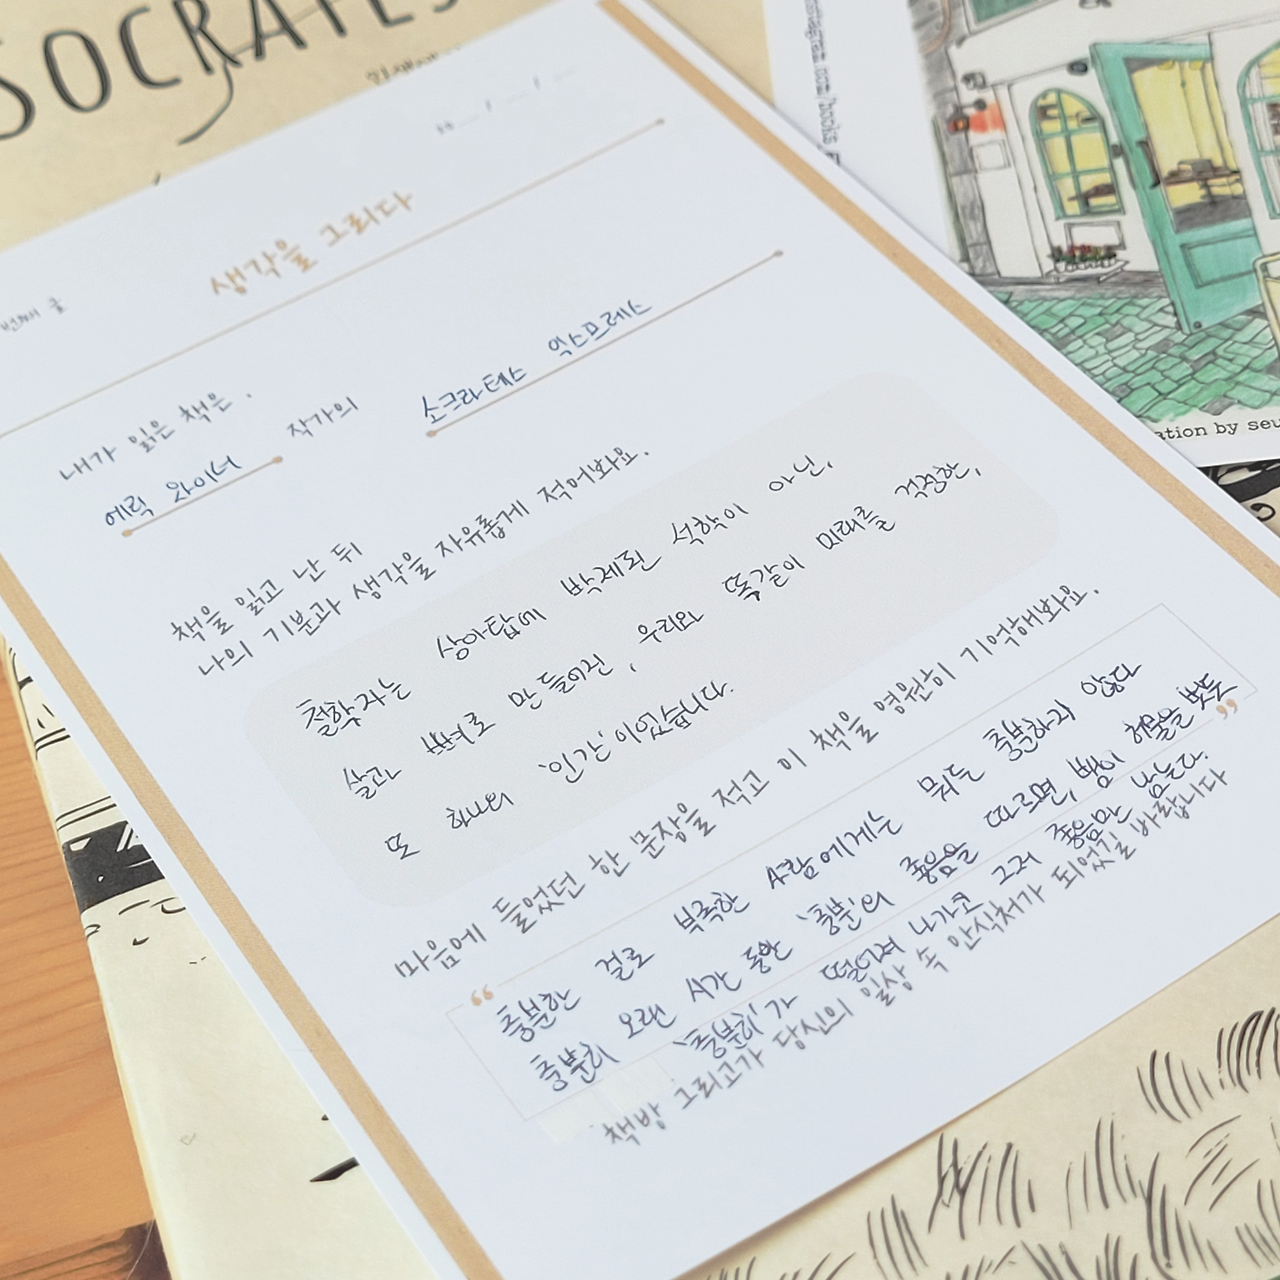 SOCRATES
생각을 그리다
번째 글
내가 읽은 책은,
에릭 와이너 작가의 소크라테스 익스프레스
책을 읽고 난 뒤
나의 기분과 생각을 자유롭게 적어봐요.
철학자는 상아탑에 박제된 석학이 아닌,
살과 뼈로 만들어진, 우리와 똑같이 미래를 걱정한,
또 하나의 '인간'이었습니다.
마음에 들었던 한 문장을 적고 이 책을 영원히 기억해봐요.
“ 충분한 걸로 부족한 사람에게는 뭐든 충분하지 않다
충분히 오랜 시간 동안 '충분'의 좋음을 따르면, 뱀이 허물을 벗듯
'충분히'가 떨어져 나가고 그저 좋음만 남는다. ”
책방 그리고가 당신의 일상 속 안식처가 되었길 바랍니다
ation by seu